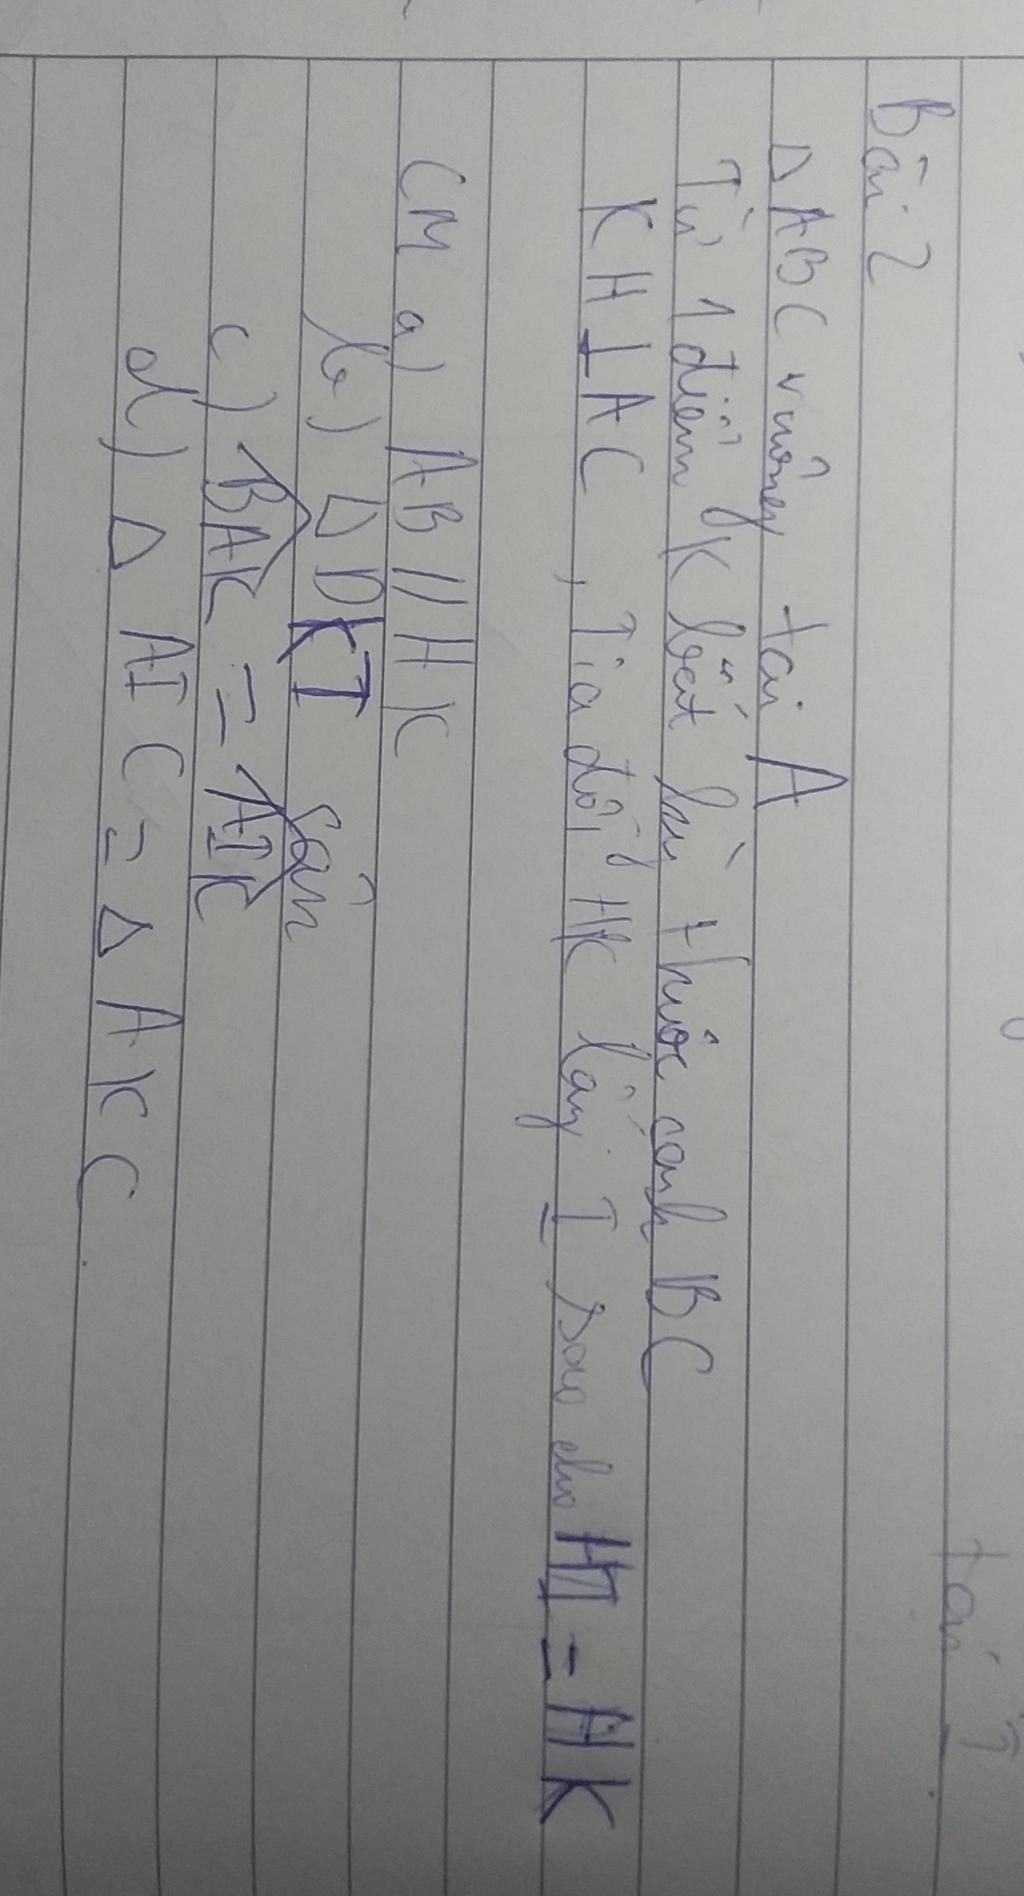 Bài 2
Δ ABC vuông tại A
Từ 1 điểm K bất kì thuộc cạnh BC
KH ⊥ AC , Tia đối HK lấy I sao cho HI = HK
CM a) AB // HK
b) Δ DKI cân
c) \widehat{BAK} = \widehat{AIK}
d) Δ AIC = Δ AKC